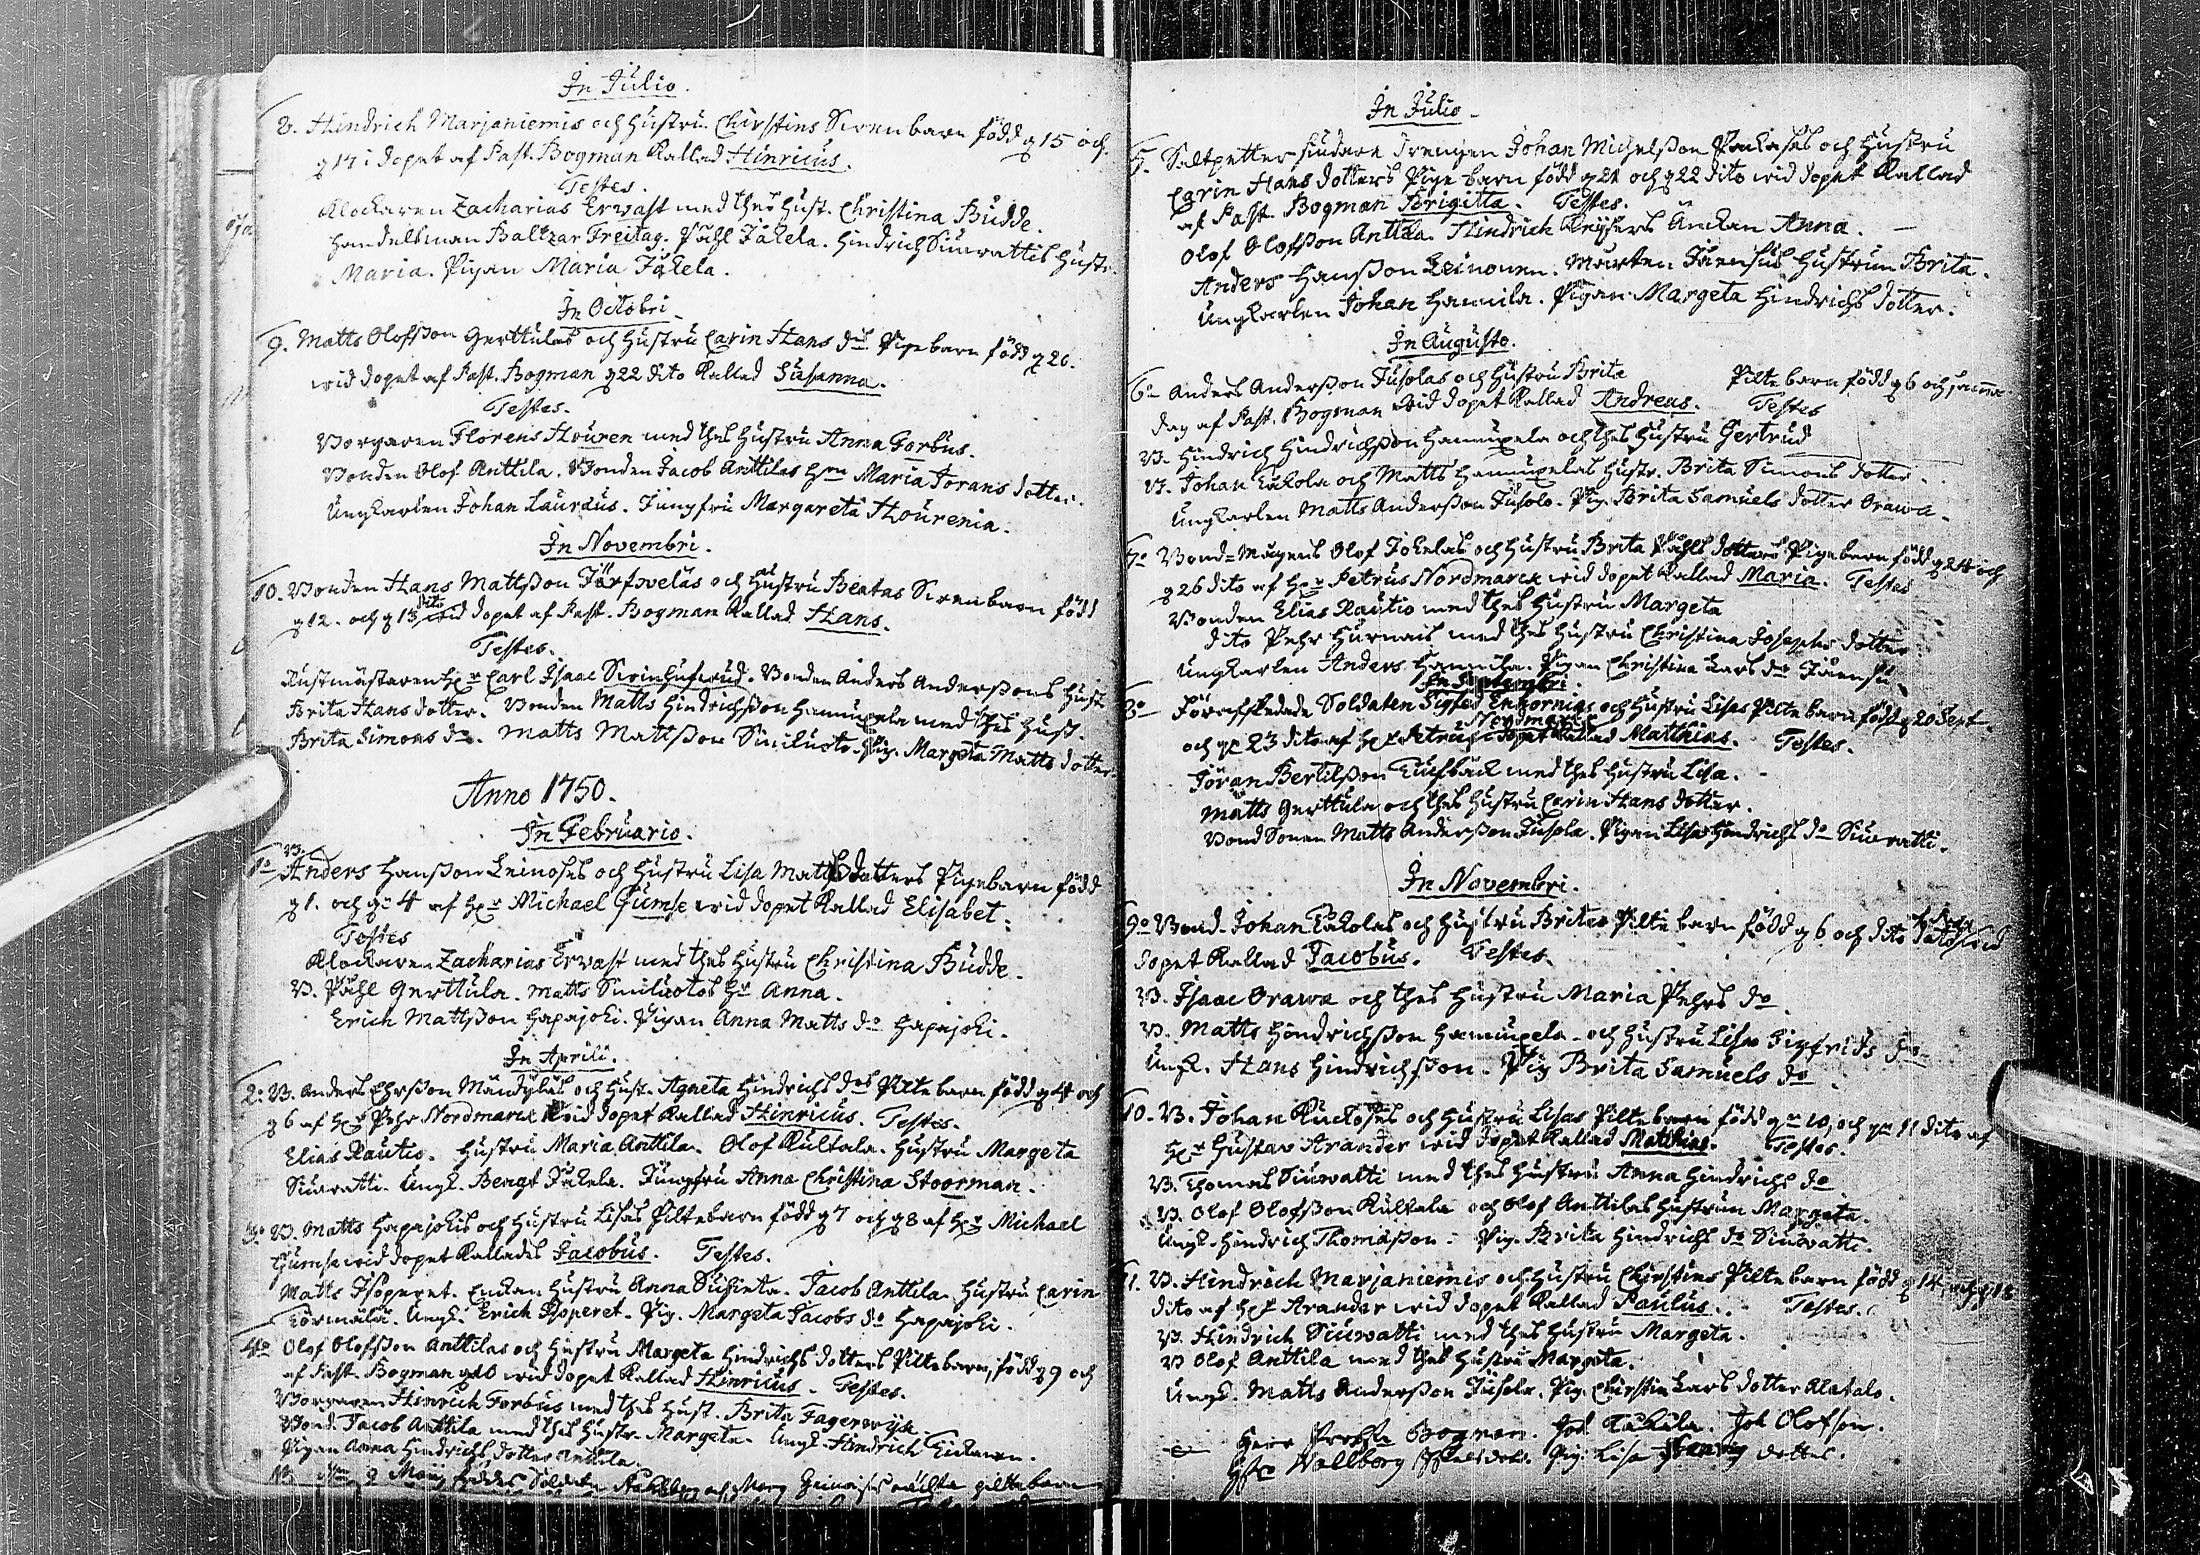 In Julio.
8. Hindrich Marjaniemis och hustru Christins Swen barn född q 15 och
q 17 i dopet af Past. Bogman kallad Hinricus.
Testes.
Klockaren Zacharias Ervast med thes hust. Christina Budde.
Handelsman Baltzar Freitag. Påhl Jåkela. Hindrich Siuvattis hustr.
Maria. Pigan Maria Jåkela.
In Octobri
9. Matts Olofsson Gerttulas och hustru Carin Hans drs Pige barn född q 20.
wid dopet af Past. Bogman q 22 dito kallad Susanna.
Testes.
Borgaren Florens Houren med thes hustru Anna Forbus.
Bonden Olof Anttila. Bonden Jacob Anttilas Anna Maria Jorans dotter.
Ungkarlen Johan Lauraus. Jungfru Margareta Hourenia.
In Novembri.
10. Bonden Hans Mattsson och hustru Beatas Swen barn född
q 12. och q 13 dito wid dopet af Past. Bogman kallad Hans.
Testes.
Rustmästaren Hr Carl Isaac. Bonden Anders Anderssons hust.
Brita Hans dotter. Bonden Matts Hindrichsson Hannuxela med thes hust.
Brita Simons dr. Matts Mattsson Siniluoto. Pig. Margeta Matts dotter.
Anno 1750.
In Februario.
1o B. Anders Hansson Leinoses och hustru Lisa Matts dotters Pigebarn född
q 1. och q 4 af Hr Michael Gumse wid dopet kallad Elisabet.
Testes
Klockaren Zacharias Ervast med thes hustru Christina Budde.
B. Påhl Gerttula. Matts Siniluotos hr Anna.
Erich Mattsson Hapajoki. Pigan Anna Matts dr Hapajoki.
In Aprili.
2. B. Anders Ehrsson och hust. Agneta Hindrichs drs Pilte barn född q 4 och
q 6 af Hr Pehr Nordmarck wid dopet kallad Hinricus. Testes.
Elias Rautio. hustru Maria Anttila. Olof Kultala. hustru Margeta
Siuvatti. Ungk. Bengt Jåkela. Jungfru Anna Christina Stoorman.
3o B. Matts Hapajokis och hustru Lisas Piltebarn född q 7 och q 8 af Hr Michael
Gumse wid dopet kallades Jacobus. Testes.
Matts Isoperet. Enckan hustru Anna. Jacob Anttila. hustru Carin
Törmälä. Ungk. Erich Isoperet. Pig. Margeta Jacobs dr Hapajoki.
4o Olof Olofsson Anttilas och hustru Margeta Hindrichs dotters Piltebarn, född q 9 och
af Past. Bogman q 10 wid dopet kallad Hinricus. Testes.
Borgaren Hinrich Forbus med thes hust. Brita Fagerwijk.
Bond. Jacob Anttila med thes hustr. Margeta. Ungk. Hindrich.
Pigan Anna Hindrichs dotter Anttila.
In Julio
5. Saltpetter siudare Drengen Johan Michelsson och hustru
Carin Hans dotters Pige barn född q 21 och q 22 dito wid dopet kallad
af Past. Bogman Brigitta. Testes.
Olof Olofsson Anttila. Hindrich Keysers Anna.
Anders Hansson Leinonen. Mårten hustrun Brita.
Ungkarlen Johan Hannila. Pigan Margeta Hindrichs dotter.
In Augusto.
6o Anders Andersson Jusolas och hustru Brita Pilte barn född q 6 och samma
dag af Past. Bogman wid dopet kallad Andreas. Testes
B. Hindrich Hindrichsson Hannuxela och thes hustru Gertrud
B. Johan Kåkola och Matts Hannuxelas hustr. Brita Simons dotter.
Ungkarlen Matts Andersson Jusola. Pig. Brita Samuels dotter Orawa.
7o Bond-Mågens Olof Jokelas och hustru Brita Påhls dotters Pigebarn född q 24 och
q 26 dito af Hr Petrus Nordmarck wid dopet kallad Maria. Testes
Bonden Elias Rautio med thes hustru Margeta
dito Pehr med thes hustru Christina Josephs dotter
Ungkarlen Anders Hannila. Pigan Christina Lars dr
In Septembri.
8o Förafskedade Soldaten Sigfred Enhörnigs och hustru Lisas Pilte barn född q 20 Sept.
och q 23 dito af Hr Petrus Nordmarck i dopet kallad Matthias. Testes.
Jöran Bertilsson med thes hustru Lisa.
Matts Gerttula och thes hustru Carin Hans dotter.
Bond Sonen Matts Andersson Jusola. Pigan Lisa Hindrichs dr Siuvatti.
In Novembri.
9o Bond. Johan Kåkolas och hustru Britas Pilte barn född q 6 och dito wid
dopet kallad Jacobus. Testes.
B. Isaac Orawa och thes hustru Maria Pehrs dr
B. Matts Hindrichsson Hannuxela och hustru Lisa Sigfrids dr
Ungk. Hans Hindrichsson. Pig Brita Samuels dr
10. B. Johan och hustru Lisas Piltebarn född q 10, och q 11 dito af
Hr Gustav Arander wid dopet kallad Matthias. Testes.
B. Thomas Siuvatti med thes hustru Anna Hindrichs dr
B. Olof Olofsson Kultala och Olof Anttilas hustrun Margeta.
Ungk. Hindrich Thomasson. Pig. Brita Hindrichs dr Siuvatti.
11. B. Hindrich Marjaniemis och hustru Christins Pilte barn född q 14, och q 18
dito af Hr Arander wid dopet kallad Paulus. Testes.
B. Hindrich Siuvatti med thes hustru Margeta.
B Olof Anttila med thes hustru Margeta.
Ungk. Matts Andersson Jusola. Pig. Christin Lars dotter Alatalo.
Herr Probst Bogman. Joh. Kåkola. Joh Olofson.
Wallberg. Pig. Lisa dotter.